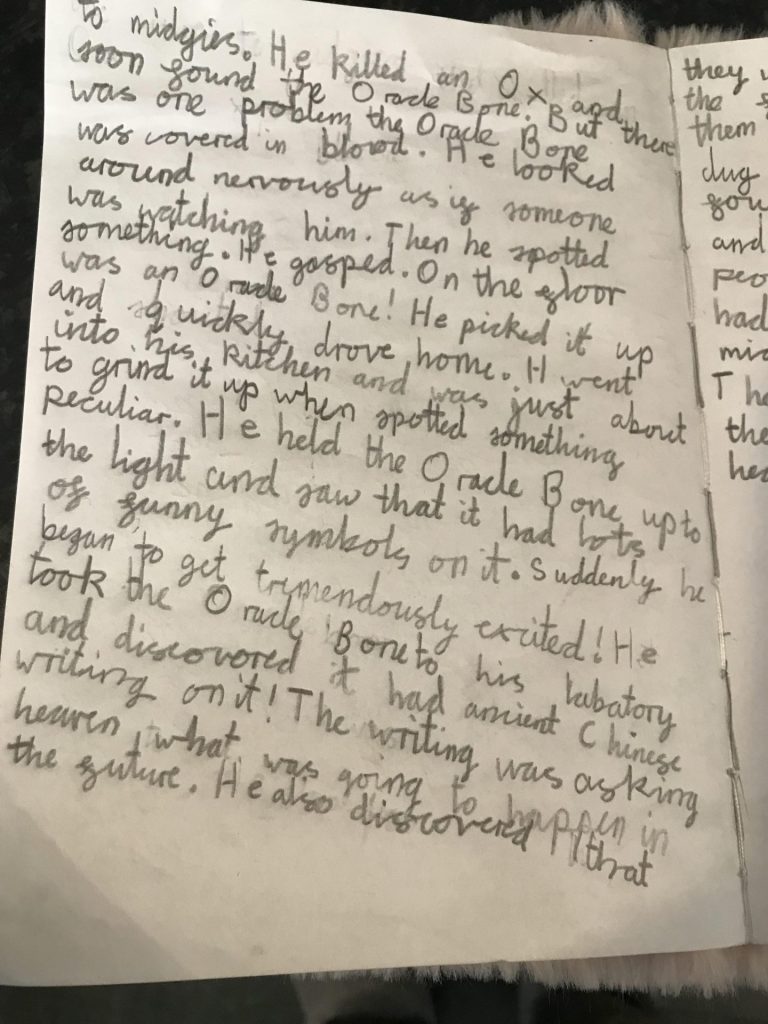 to midgies. He killed an Ox and
soon found the Oracle Bone. But there
was one problem, the Oracle Bone
was covered in blood. He looked
around nervously as if someone
was watching him. Then he spotted
something. He gasped. On the floor
was an Oracle Bone! He picked it up
and quickly drove home. H went
into his kitchen and was just about
to grind it up when spotted something
Peculiar. He held the Oracle Bone up to
the light and saw that it had lots
of funny symbols on it. Suddenly he
began to get tremendously excited! He
took the Oracle Bone to his labatory
and discovered it had ancient Chinese
writing on it! The writing was asking
heaven, what was going to happen in
the future. He also discovered that
they
the
them
dug
and
had